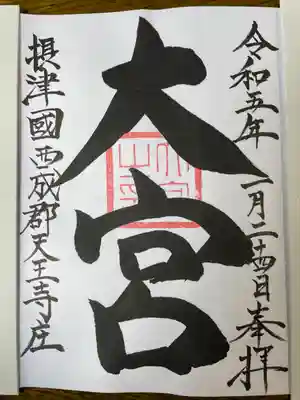 令和五年 一月二十四日奉拝
大宮
摂津國西成郡天王寺庄